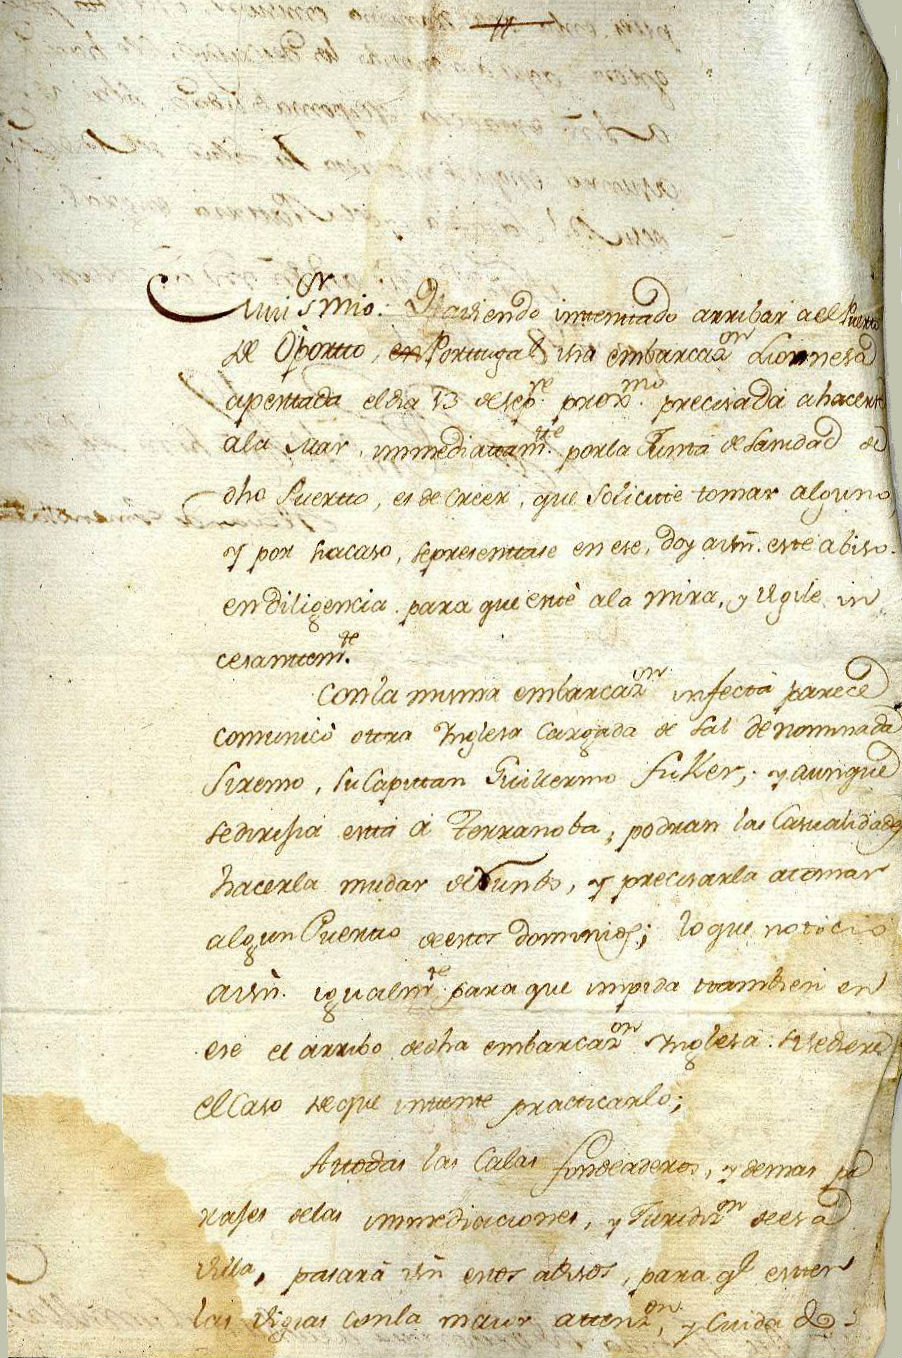 Mui Sr mio. Haviendo intentado arribar a el Puerto
de Oportto, en Portugal una embarcaon Lionnesa
apestada el dia 13 de sepre proxmo precisada a hacerse
ala Mar, immediattamte por la Junta de Sanidad de
dho Puertto, es de creer, que solicite tomar alguno,
y por hacaso, sepresenttase en ese, doy a vm. este abiso
en diligencia para que esté ala mira, y vigile in
cesanttemte.
Con la misma embarcaon infecta parece
comunicó ottra Inglesa Cargada de Sal denominada
Siremo, su Capittan Guillermo Fuker, y aunque
sedirisia esta a Terranoba, podran las Casualidades
hacerla mudar de Rumbo, y precisarla a tomar
algun Puertto de estos dominios; lo que noticio
a vm. igualmte para que impida ttambien en
ese el arribo de dha embarcaon Inglesa si sediere
el Caso de que intente practicarlo;
A ttodas las Calas fondeaderos, y demas pa
rages de las immediaciones, y Juridion de esa
villa, pasará vm estos abisos, para qe esten
las vigias con la maior attenon, y Cuidado: